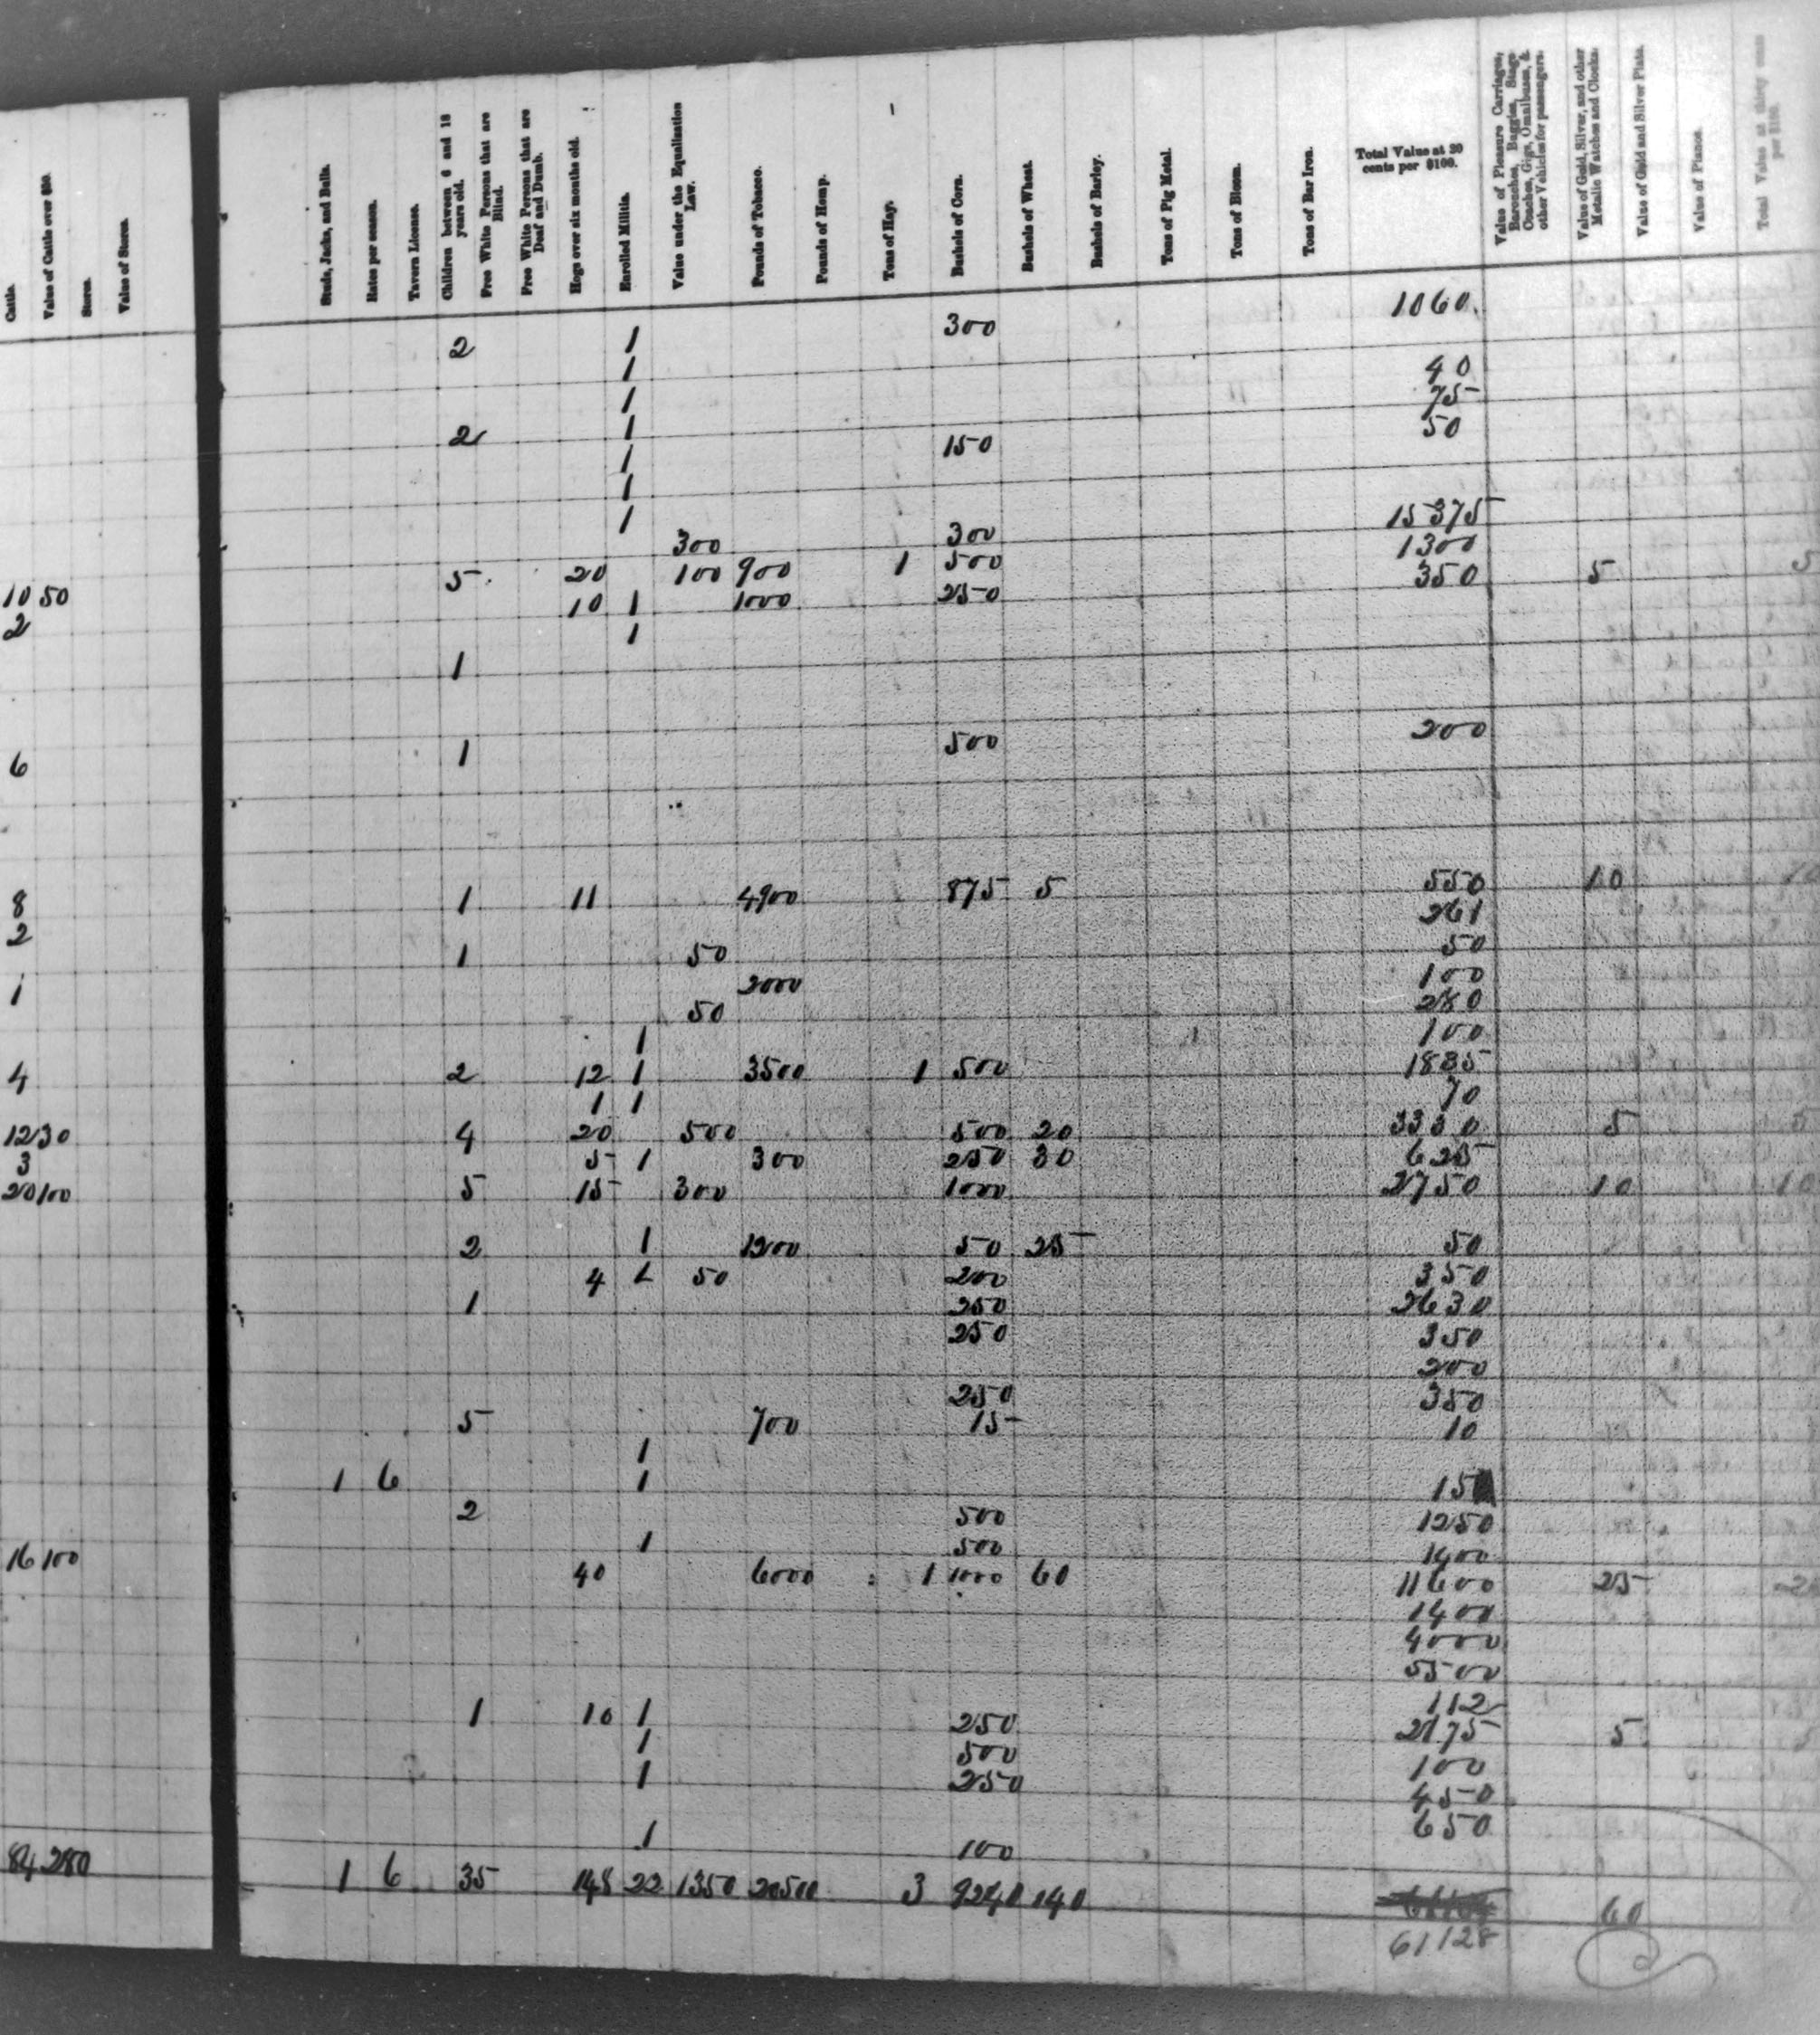 Cattle. Value of Cattle over $50. Stores. Value of Stores. Studs, Jacks, and Bulls. Rates per season. Tavern License. Children between 6 and 18 years old. Free White Persons that are Blind. Free White Persons that are Deaf and Dumb. Hogs over six months old. Enrolled Militia. Value under the Equalization Law. Pounds of Tobacco. Pounds of Hemp. Tons of Hay. Bushels of Corn. Bushels of Wheat. Bushels of Barley. Tons of Pig Metal. Tons of Bloom. Tons of Bar Iron. Total Value at 30 cents per $100. Value of Pleasure Carriages, Barouches, Buggies, Stage-Coaches, Gigs, Omnibuses, & other Vehicles for passengers. Value of Gold, Silver, and other Metalic Watches and Clocks. Value of Gold and Silver Plate. Value of Pianos. Total Value at thirty cents per $100.
2 1 300 1060
1
1 40
2 1 75
1 150 50
1
1 15375
300 300 1300
10 50 5 20 100 900 1 500 350 5 5
2 10 1 1000 250
1
1
6 1 500 200
8 1 11 4900 875 5 550 10 10
2 261
1 1 50 50
2000 100
50 280
1 100
4 2 12 1 3500 1 500 1835
1 1 70
12 30 4 20 500 500 20 3330 5 5
3 5 1 300 250 30 625
20 100 5 15 300 1000 2750 10 10
2 1 1200 50 25 50
4 1 50 200 350
1 250 2630
250 350
200
250 350
5 700 15 10
1
1 6 1 15
2 500 1250
1 500 1400
16 100 40 6000 1 1000 60 11600 25
1400
4000
5500
112
1 10 1 250 2175 5
1 500 100
1 250 450
650
1 100
84 280 1 6 35 148 22 1350 20500 3 9240 140 60
61128